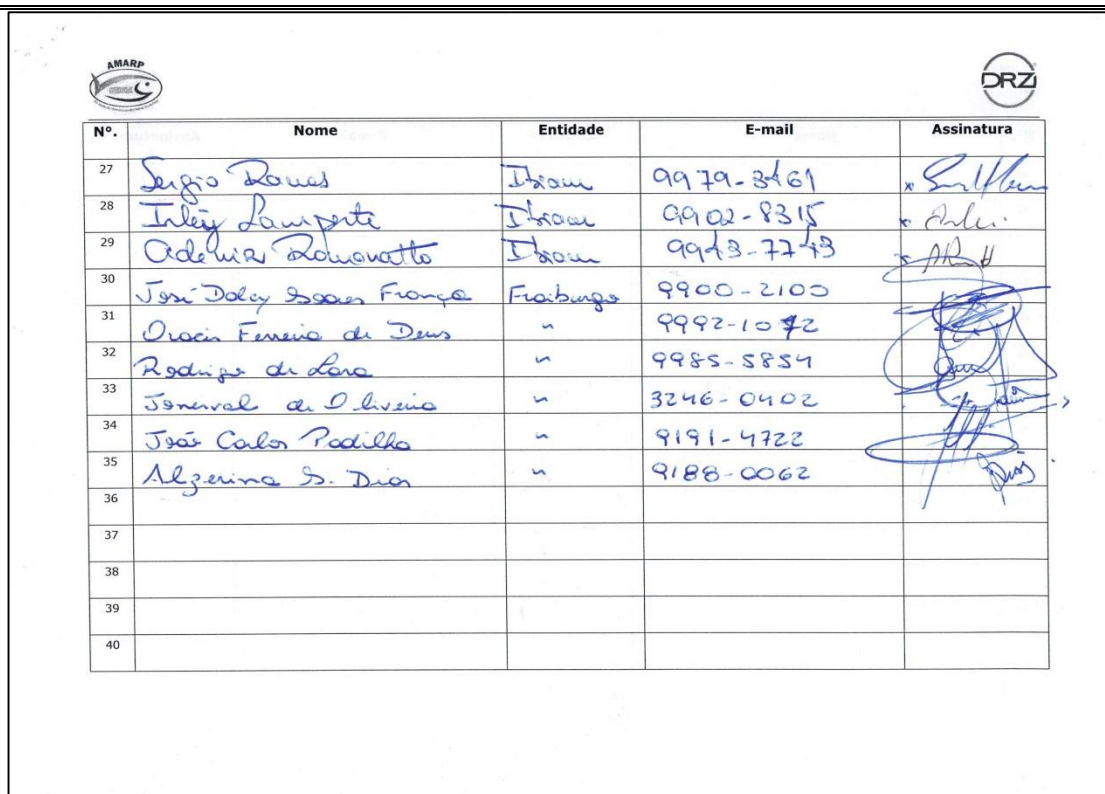 AMARP
DRZ
Nº. Nome Entidade E-mail Assinatura
27 Sergio Ramos Ibiam 9979-3461
28 Irley Lamperte Ibiam 9902-8315
29 Ademir Romonatto Ibiam 9943-7743
30 José Dolcy Soares França Fraiburgo 9900-2100
31 Oracir Ferreira de Deus " 9992-1072
32 Rodrigo de Lara " 9985-5854
33 Jonerval de Oliveira " 3246-0402
34 João Carlos Padilha " 9191-4722
35 Alzerina S. Dias " 9188-0062 Dias
36
37
38
39
40